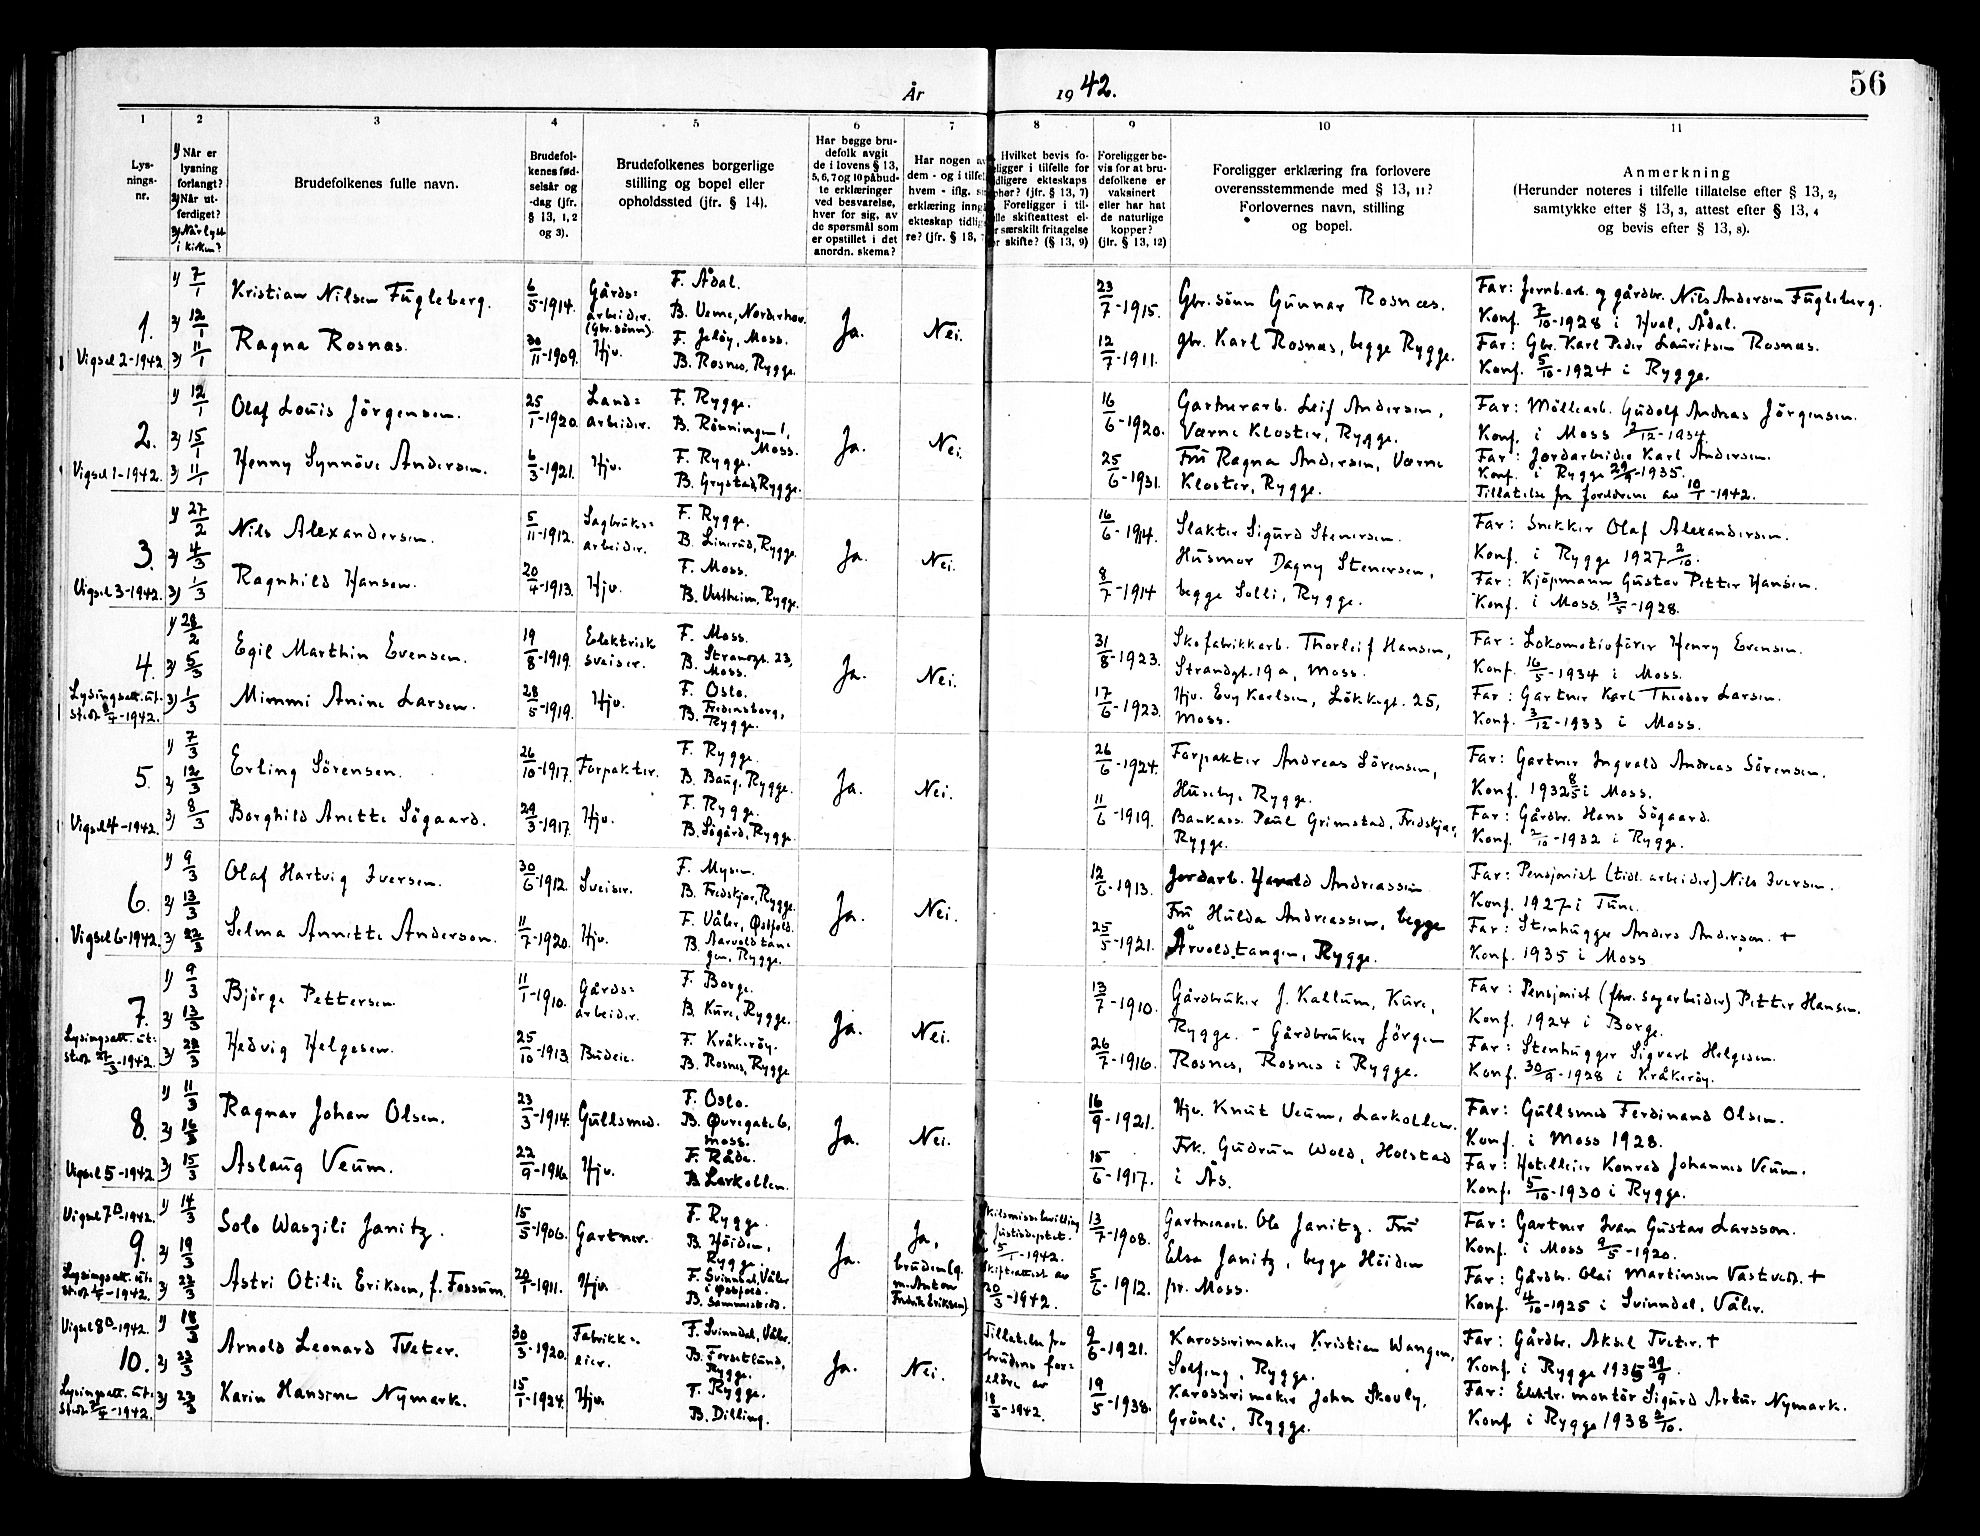 56
År 1942.
1 2 3 4 5 6 7 8 9 10 11
Lys-
nings-
nr.
1) Når er
lysning
forlangt?
2) Når ut-
ferdiget?
3) Når lyst
i kirken?
Brudefolkenes fulle navn.
Brudefol-
kenes fød-
selsår og
-dag (jfr.
§ 13, 1, 2
og 3).
Brudefolkenes borgerlige
stilling og bopel eller
opholdssted (jfr. § 14).
Har begge bru-
defolk avgit
de i lovens § 13,
5, 6, 7 og 10 påbud-
te erklæringer
ved besvarelse,
hver for sig, av
de spørsmål som
er opstillet i det
anordn. skema?
Har nogen av
dem - og i tilfel
hvem - iflg.
erklæring inng
ekteskap tidlig
re? (jfr. § 13,
Hvilket bevis fo-
religger i tilfelle for
tidligere ekteskaps
ophør? (jfr. § 13, 7)
Foreligger i til-
felle skifteattest el-
ler særskilt fritagelse
for skifte? (§ 13, 9)
Foreligger be-
vis for at bru-
defolkene er
vaksinert
eller har hat
de naturlige
kopper?
(jfr. § 13, 12)
Foreligger erklæring fra forlovere
overensstemmende med § 13, 11?
Forlovernes navn, stilling
og bopel.
Anmerkning
(Herunder noteres i tilfelle tillatelse efter § 13, 2,
samtykke efter § 13, 3, attest efter § 13, 4
og bevis efter § 13, 8).
1.
Vigsel 2-1942.
1) 7/1
2) 12/1
3) 11/1
Kristian Nilsen Fugleberg.
Ragna Rosnæs.
6/5-1914.
30/11-1909.
Gårds=
arbeider.
(Gbr. sønn).
Hjv.
F. Ådal.
B. Veme, Norderhov.
F. Jeløy, Moss.
B. Rosnes, Rygge.
Ja.
Nei.
23/7-1915.
12/7-1911.
Gbr. sønn Gunnar Rosnæs.
gbr. Karl Rosnæs, begge Rygge.
Far: Jernb.arb. og gårdbr. Nils Andersen Fugleberg.
Konf. 7/10-1928 i Hval, Ådal.
Far: Gbr. Karl Peder Lauritsen Rosnæs.
Konf. 5/10-1924 i Rygge.
2.
Vigsel 1-1942.
1) 12/1
2) 15/1
3) 11/1
Olaf Louis Jörgensen.
Henny Synnöve Andersen.
25/1-1920.
6/3-1921.
Land=
arbeider.
Hjv.
F. Rygge.
B. Rönningen 1,
Moss.
F. Rygge.
B. Grystad, Rygge.
Ja.
Nei.
16/6-1920.
25/6-1931.
Gartnerarb. Leif Andersen,
Værne Kloster, Rygge.
Fru Ragna Andersen, Værne
Kloster, Rygge.
Far: Möllearb. Gudolf Andreas Jörgensen.
Konf. i Moss 2/12-1934.
Far: Jordarbeider Karl Andersen.
Konf. i Rygge 29/9-1935.
Tillatelse fra foreldrene av 10/1-1942.
3.
Vigsel 3-1942.
1) 27/2
2) 4/3
3) 1/3
Nils Alexandersen.
Ragnhild Hansen.
5/11-1912.
20/4-1913.
Sagbruks=
arbeider.
Hjv.
F. Rygge.
B. Linerud, Rygge.
F. Moss.
B. Vestheim, Rygge.
Ja.
Nei.
16/6-1914.
8/7-1914
Slakter Sigurd Stenersen.
Husmor Dagny Stenersen,
begge Solli, Rygge.
Far: Snekker Olaf Alexandersen.
Konf. i Rygge 1927 2/10.
Far: Kjöpmann Gustav Petter Hansen.
Konf. i Moss. 13/5-1928.
4.
Lysingsatt. ut-
sted. 8/4-1942.
1) 28/2
2) 5/3
3) 1/3
Egil Marthin Evensen.
Mimmi Anine Larsen.
19/8-1919.
28/5-1919.
Elektrisk
sveiser.
Hjv.
F. Moss.
B. Strandgt. 23,
Moss.
F. Oslo.
B. Fredensborg,
Rygge.
Ja.
Nei.
31/8-1923.
17/6-1923.
Skofabrikkarb. Thorleif Hansen,
Strandgt. 19a, Moss.
Hjv. Evy Karlsen, Lökkegt. 25,
Moss.
Far: Lokomotivförer Henry Evensen.
Konf. 16/5-1934 i Moss.
Far: Gartner Karl Theodor Larsen.
Konf. 3/12-1933 i Moss.
5.
Vigsel 4-1942.
1) 7/3
2) 12/3
3) 8/3
Erling Sörensen.
Borghild Anette Sögaard.
26/10-1917.
24/3-1917.
Forpakter.
Hjv.
F. Rygge.
B. Baug, Rygge.
F. Rygge.
B. Sögård, Rygge
Ja.
Nei.
26/6-1924.
11/6-1919.
Forpakter Andreas Sörensen,
Huseby, Rygge.
Bankass. Paul Grimstad, Fredskjær,
Rygge.
Far: Gartner Ingvald Andreas Sörensen.
Konf. 1932 8/5 i Moss.
Far: Gårdbr. Hans Sögaard.
Konf. 2/10-1932 i Rygge.
6.
Vigsel 6-1942.
1) 9/3
2) 13/3
3) 22/3
Olaf Hartvig Iversen.
Selma Annette Anderson.
30/6-1912.
11/7-1920.
Sveiser.
Hjv.
F. Mysen.
B. Fredskjær, Rygge.
F. Våler, Østfold.
B. Aarvoldtan-
gen, Rygge.
Ja.
Nei.
12/6-1913.
25/5-1921.
Jordarb. Harald Andreassen.
Fru Hulda Andreassen, begge
Årvoldtangen, Rygge.
Far: Pensjonist (tidl. arbeider) Nils Iversen.
Konf. 1927 i Tune.
Far: Stenhugger Anders Anderson. +
Konf. 1935 i Moss
7.
Lysingsatt. ut-
sted. 27/3-1942.
1) 9/3
2) 13/3
3) 22/3
Björge Pettersen.
Hedvig Helgesen.
11/1-1910.
25/10-1913
Gårds=
arbeider.
Budeie.
F. Borge.
B. Kure, Rygge.
F. Kråkeröy.
B. Rosnes, Rygge
Ja.
Nei.
13/7-1910.
26/7-1916.
Gårdbruker J. Kallum, Kure,
Rygge. - Gårdbruker Jörgen
Rosnes, Rosnes i Rygge.
Far: Pensjonist (fhv. sagarbeider) Petter Hansen.
Konf. 1924 i Borge.
Far: Stenhugger Sigvart Helgesen.
Konf. 30/9-1928 i Kråkeröy.
8.
Vigsel 5-1942
1) 11/3
2) 16/3
3) 15/3
Ragnar Johan Olsen.
Aslaug Veum.
23/3-1914.
22/9-1916.
Gullsmed.
Hjv.
F. Oslo.
B. Øvregate 6,
Moss.
F. Råde.
B. Larkollen.
Ja.
Nei.
16/9-1921.
15/6-1917.
Hjv. Knut Veum, Larkollen.
Frk. Gudrun Wold, Holstad
i Ås.
Far: Gullsmed Ferdinand Olsen.
Konf. i Moss 1928.
Far: Hotelleier Konrad Johannes Veum.
Konf. 5/10-1930 i Rygge.
Vigsel 7B-1942.
9.
Lysingsatt. ut-
1) 14/3
2) 19/3
3) 22/3
Solo Waszili Janitz.
Astri Otilie Eriksen, f. Fossum.
15/5-1906.
20/7-1911.
Gartner.
Hjv.
F. Rygge.
B. Höiden,
Rygge.
F. Svinndal, Våler
i Østfold.
B. Sammesteds.
Ja.
Ja,
bruden (g.
m. Anton
Fredrik Eriksen)
Skilsmissebevilling
fra Justisdeptet.
5/1-1942.
Skifteattest av
20/3-1942.
13/7-1908.
5/6-1912.
Gartnerarb. Ole Janitz. Fru
Elsa Janitz, begge Höiden
pr. Moss.
Far: Gartner Ivan Gustav Larsson.
Konf. i Moss 9/5-1920.
Far: Gårdbr. Olai Martinsen Vastvedt. +
Konf. 4/10-1925 i Svinndal, Våler.
Vigsel 8B-1942.
10.
Lysingsatt. ut-
1) 18/3
2) 23/3
3) 22/3
Arnold Leonard Tveter.
Karin Hansine Nymark.
30/3-1920.
15/1-1924.
Fabrikk=
eier.
Hjv.
F. Svinndal, Våler.
B. Forsetlund,
Rygge.
F. Rygge.
B. Dilling.
Ja.
Nei.
Tillatelse fra
brudens for=
eldre av
18/3-1942.
9/6-1921.
19/5-1938.
Karosserimaker Kristian Wangen,
Solfeng, Rygge.
Karosserimaker John Skovly,
Grönli, Rygge.
Far: Gårdbr. Aksel Tveter. +
Konf. i Rygge 1935 29/9.
Far: Elektr. montör Sigurd Artur Nymark.
Konf. i Rygge 1938 2/10.